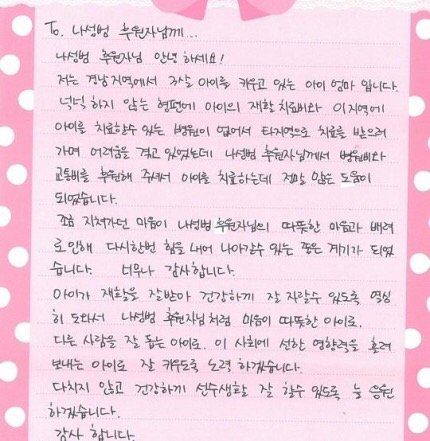 To. 나성범 후원자님께...
나성범 후원자님 안녕하세요!
저는 경남지역에서 3살 아이를 키우고 있는 아이 엄마 입니다.
넉넉하지 않는 형편에 아이의 재활치료비와 이지역에
아이를 치료할수 있는 병원이 없어서 타지역으로 치료를 받으러
가며 어려움을 겪고 있었는데 나성범 후원자님께서 병원비와
교통비를 후원해 주셔서 아이를 치료하는데 정말 많은 도움이
되었습니다.
조금 지쳐가던 마음이 나성범 후원자님의 따뜻한 마음과 배려
로 인해 다시한번 힘을 내어 나아갈수 있는 좋은 계기가 되었
습니다. 너무나 감사합니다.
아이가 재활을 잘받아 건강하게 잘 자랄수 있도록 열심
히 도와서 나성범 후원자님처럼 마음이 따뜻한 아이로.
다른 사람을 잘 돕는 아이로. 이 사회에 선한 영향력을 흘려
보내는 아이로 잘 키우도록 노력 하겠습니다.
다치지 않고 건강하게 선수생활 잘 할수 있도록 늘 응원
하겠습니다.
감사 합니다.